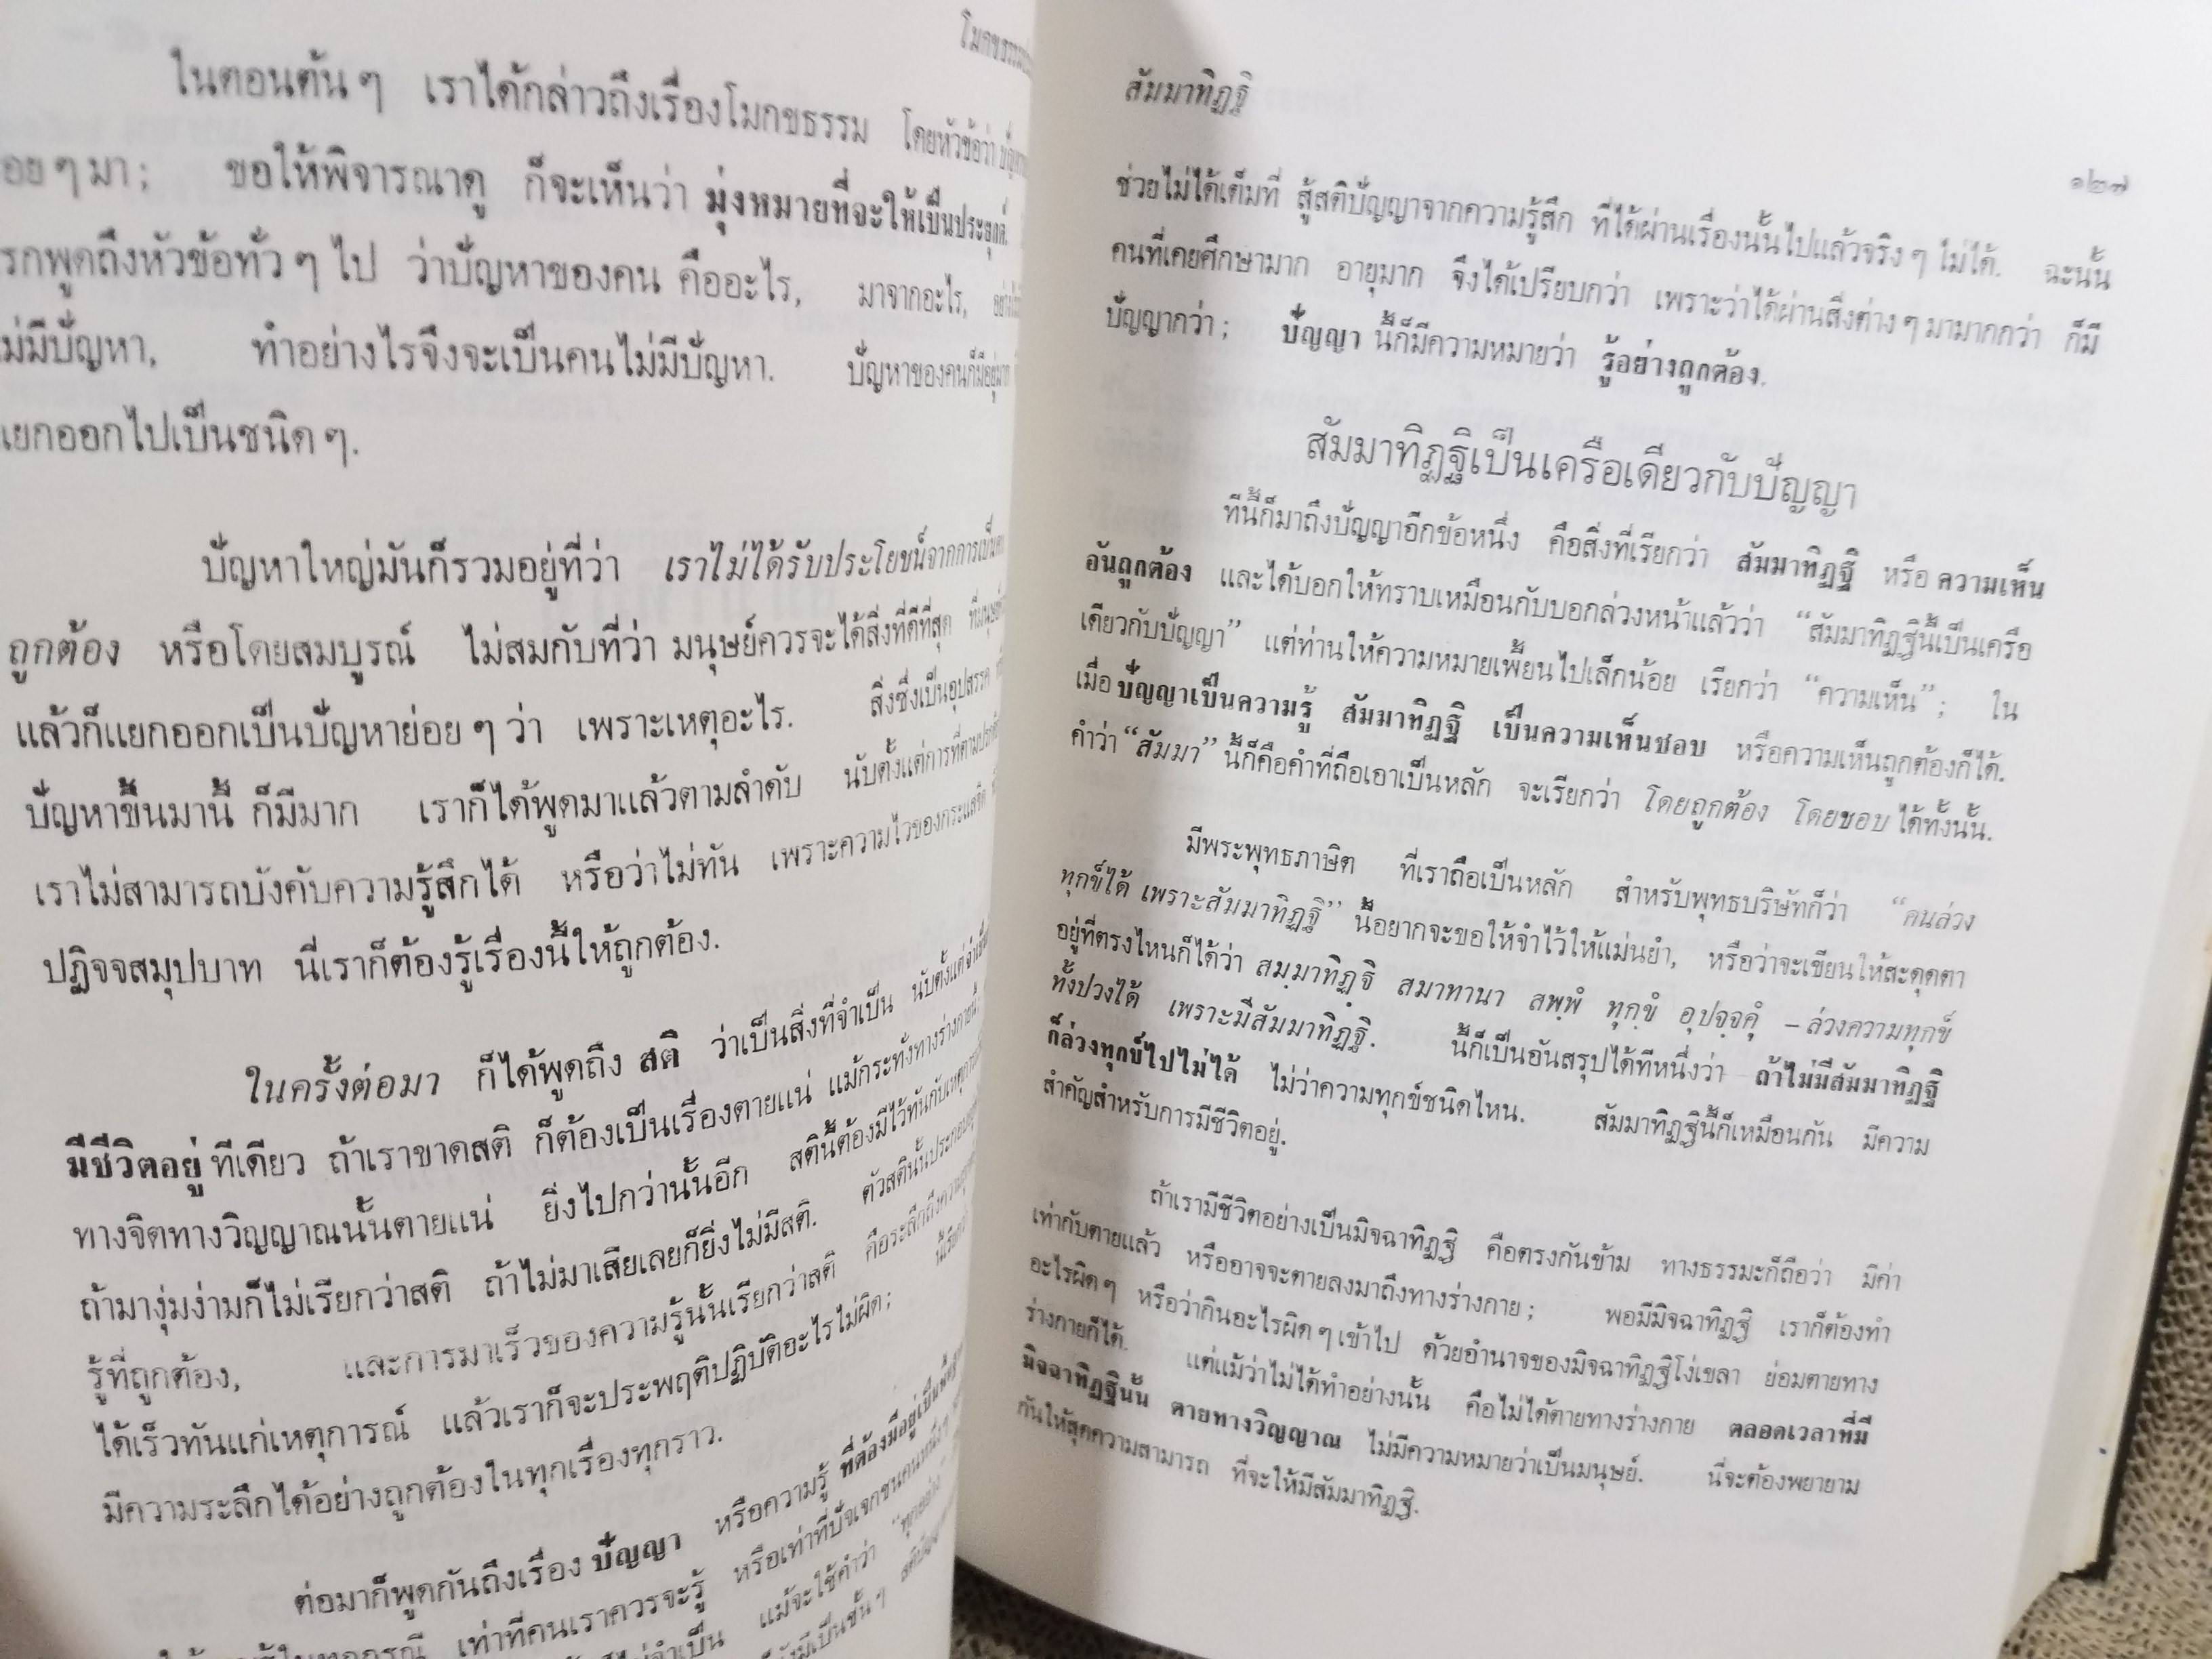 ในตอนต้น ๆ เราได้กล่าวถึงเรื่องโมกขธรรม โดยหัวข้อว่า
ๆ มา; ขอให้พิจารณาดู ก็จะเห็นว่า มุ่งหมายที่จะให้เป็นประยุกต์.
พูดถึงหัวข้อทั่ว ๆ ไป ว่าปัญหาของคน คืออะไร, มาจากอะไร,
ม่มีปัญหา, ทำอย่างไรจึงจะเป็นคนไม่มีปัญหา. ปัญหาของคนก็มีอยู่มาก
แยกออกไปเป็นชนิด ๆ.
ปัญหาใหญ่มันก็รวมอยู่ที่ว่า เราไม่ได้รับประโยชน์จากการเป็น
ถูกต้อง หรือโดยสมบูรณ์ ไม่สมกับที่ว่า มนุษย์ควรจะได้สิ่งที่ดีที่สุด
แล้วก็แยกออกเป็นปัญหาย่อย ๆ ว่า เพราะเหตุอะไร. สิ่งซึ่งเป็นอุปสรรค
ปัญหาขึ้นมานี้ ก็มีมาก เราก็ได้พูดมาแล้วตามลำดับ นับตั้งแต่การที่
เราไม่สามารถบังคับความรู้สึกได้ หรือว่าไม่ทัน เพราะความไวของกระแสจิต
ปฏิจจสมุปบาท นี่เราก็ต้องรู้เรื่องนี้ให้ถูกต้อง.
ในครั้งต่อมา ก็ได้พูดถึง สติ ว่าเป็นสิ่งที่จำเป็น นับตั้งแต่
มีชีวิตอยู่ ทีเดียว ถ้าเราขาดสติ ก็ต้องเป็นเรื่องตายแน่ แม้กระทั่งทางร่างกายนี้.
ทางจิตทางวิญญาณนั้นตายแน่ ยิ่งไปกว่านั้นอีก สตินี้ต้องมีไว้ทันกับเหตุการณ์
ถ้ามางุ่มง่ามก็ไม่เรียกว่าสติ ถ้าไม่มาเสียเลยก็ยิ่งไม่มีสติ. ตัวสตินั้นประกอบ
รู้ที่ถูกต้อง, และการมาเร็วของความรู้นั้นเรียกว่าสติ คือระลึกถึงความ
ได้เร็วทันแก่เหตุการณ์ แล้วเราก็จะประพฤติปฏิบัติอะไรไม่ผิด;
มีความระลึกได้อย่างถูกต้องในทุกเรื่องทุกราว.
ต่อมาก็พูดกันถึงเรื่อง ปัญญา หรือความรู้ ที่ต้องมีอยู่เป็น
เท่าที่คนเราควรจะรู้ หรือเท่าที่ปัจเจกชนคนหนึ่ง ๆ
จำเป็น แม้จะใช้คำว่า
มีเป็นชั้น ๆ
สัมมาทิฏฐิ
๑๒๗
ช่วยไม่ได้เต็มที่ สู้สติปัญญาจากความรู้สึก ที่ได้ผ่านเรื่องนั้นไปแล้วจริง ๆ ไม่ได้. ฉะนั้น
คนที่เคยศึกษามาก อายุมาก จึงได้เปรียบกว่า เพราะว่าได้ผ่านสิ่งต่าง ๆ มามากกว่า ก็มี
ปัญญากว่า; ปัญญา นี้ก็มีความหมายว่า รู้อย่างถูกต้อง.
สัมมาทิฏฐิเป็นเครือเดียวกับปัญญา
ทีนี้ก็มาถึงปัญญาอีกข้อหนึ่ง คือสิ่งที่เรียกว่า สัมมาทิฏฐิ หรือ ความเห็น
อันถูกต้อง และได้บอกให้ทราบเหมือนกับบอกล่วงหน้าแล้วว่า “สัมมาทิฏฐินี้เป็นเครือ
เดียวกับปัญญา” แต่ท่านให้ความหมายเพี้ยนไปเล็กน้อย เรียกว่า “ความเห็น”; ใน
เมื่อ ปัญญาเป็นความรู้ สัมมาทิฏฐิ เป็นความเห็นชอบ หรือความเห็นถูกต้องก็ได้.
คำว่า “สัมมา” นี้ก็คือคำที่ถือเอาเป็นหลัก จะเรียกว่า โดยถูกต้อง โดยชอบ ได้ทั้งนั้น.
มีพระพุทธภาษิต ที่เราถือเป็นหลัก สำหรับพุทธบริษัทก็ว่า “คนล่วง
ทุกข์ได้ เพราะสัมมาทิฏฐิ” นี้อยากจะขอให้จำไว้ให้แม่นยำ, หรือว่าจะเขียนให้สะดุดตา
อยู่ที่ตรงไหนก็ได้ว่า สมฺมาทิฏฺฐิ สมาทานา สพฺพํ ทุกฺขํ อุปจฺจคุํ – ล่วงความทุกข์
ทั้งปวงได้ เพราะมีสัมมาทิฏฐิ. นี้ก็เป็นอันสรุปได้ทีหนึ่งว่า ถ้าไม่มีสัมมาทิฏฐิ
ก็ล่วงทุกข์ไปไม่ได้ ไม่ว่าความทุกข์ชนิดไหน. สัมมาทิฏฐินี้ก็เหมือนกัน มีความ
สำคัญสำหรับการมีชีวิตอยู่.
ถ้าเรามีชีวิตอย่างเป็นมิจฉาทิฏฐิ คือตรงกันข้าม ทางธรรมะก็ถือว่า มีค่า
เท่ากับตายแล้ว หรืออาจจะตายลงมาถึงทางร่างกาย; พอมีมิจฉาทิฏฐิ เราก็ต้องทำ
อะไรผิด ๆ หรือว่ากินอะไรผิด ๆ เข้าไป ด้วยอำนาจของมิจฉาทิฏฐิโง่เขลา ย่อมตายทาง
ร่างกายก็ได้. แต่แม้ว่าไม่ได้ทำอย่างนั้น คือไม่ได้ตายทางร่างกาย ตลอดเวลาที่มี
มิจฉาทิฏฐินั้น ตายทางวิญญาณ ไม่มีความหมายว่าเป็นมนุษย์. นี่จะต้องพยายาม
กันให้สุดความสามารถ ที่จะให้มีสัมมาทิฏฐิ.